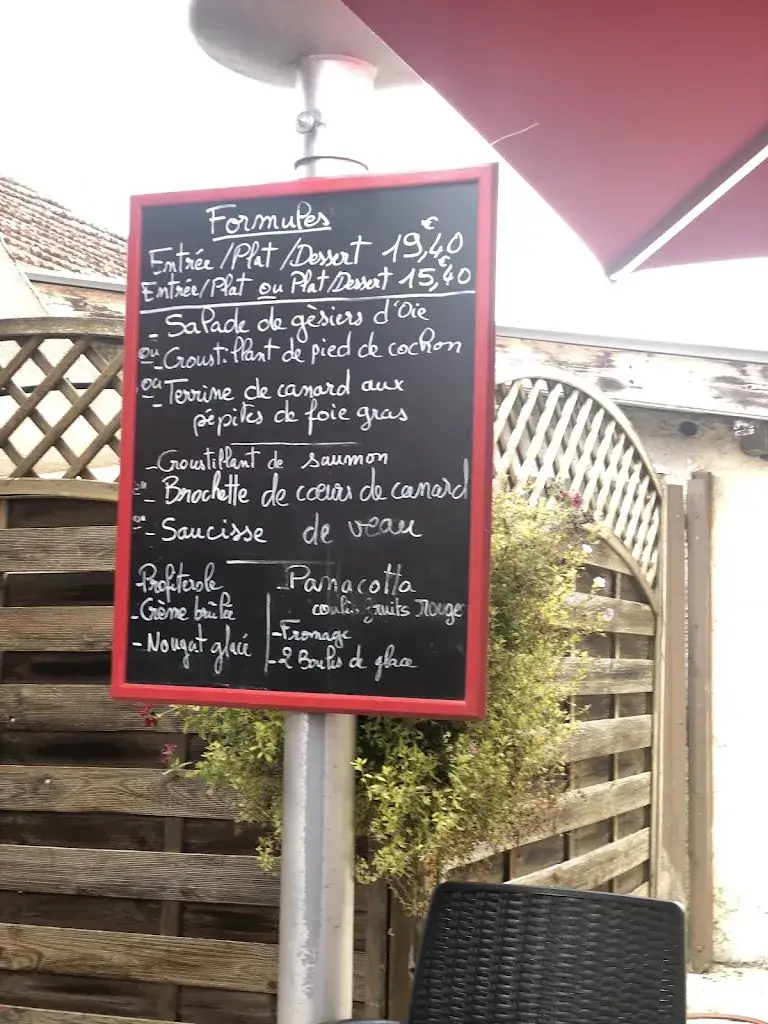 Formules
Entrée/Plat/Dessert 19,40€
Entrée/Plat ou Plat/Dessert 15,40€
- Salade de gèsiers d'Oie
ou - Croustillant de pied de cochon
ou - Terrine de canard aux
pépites de foie gras
- Croustillant de saumon
ou - Brochette de cœurs de canard
ou - Saucisse de veau
- Profiterole
- Crème brûlée
- Nougat glacé
- Panacotta
coulis fruits rouge
- Fromage
- 2 Boules de glace